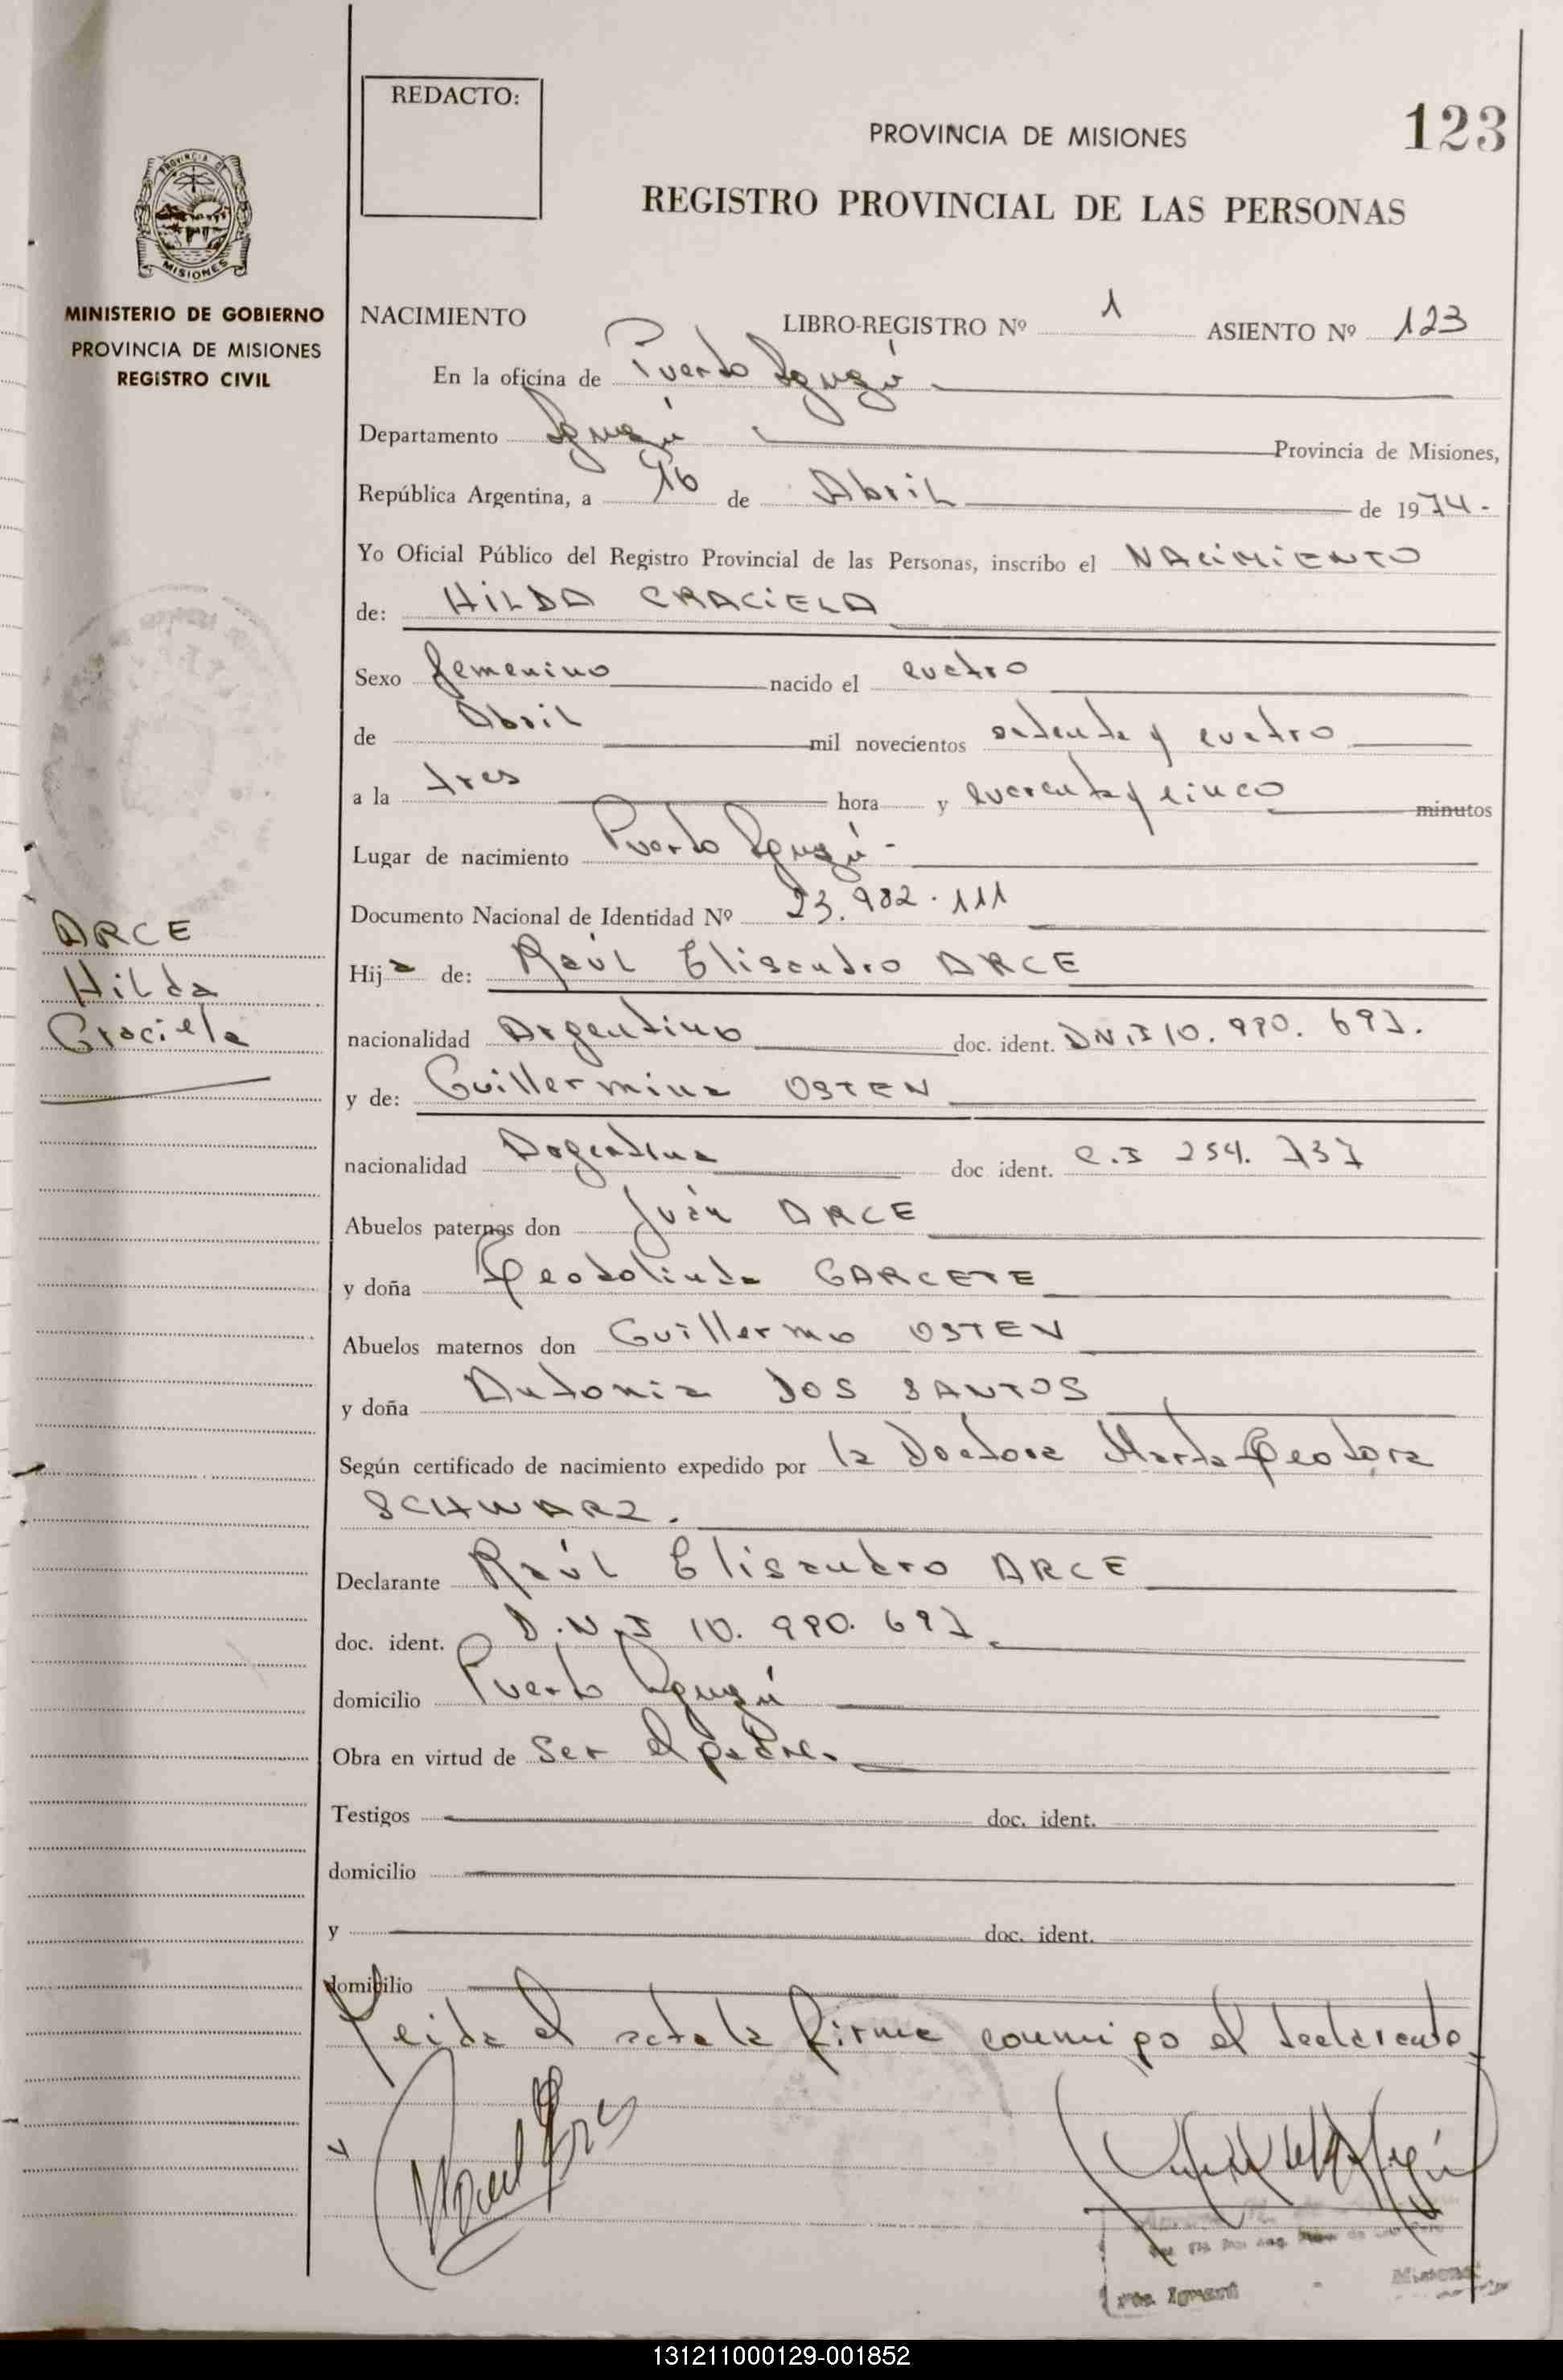 REDACTO:
PROVINCIA DE MISIONES
123
REGISTRO PROVINCIAL DE LAS PERSONAS
PROVINCIA DE
MISIONES
MINISTERIO DE GOBIERNO
PROVINCIA DE MISIONES
REGISTRO CIVIL
NACIMIENTO LIBRO-REGISTRO Nº 1 ASIENTO Nº 123
En la oficina de Puerto Iguazú
Departamento Iguazú Provincia de Misiones,
República Argentina, a 16 de Abril de 1974.-
Yo Oficial Público del Registro Provincial de las Personas, inscribo el NACIMIENTO
de: HILDA GRACIELA
Sexo femenino nacido el cuatro
de Abril mil novecientos setenta y cuatro
a la tres hora y cuarenta y cinco minutos
Lugar de nacimiento Puerto Iguazú.-
Documento Nacional de Identidad Nº 23.982.111
ARCE
Hilda
Graciela
Hija de: Raúl Elisandro ARCE
nacionalidad Argentino doc. ident. DN.I 10.990.697.
y de: Guillermina OSTEN
nacionalidad Argentina doc ident. C.I 254.737
Abuelos paternos don Juán ARCE
y doña Teodolinda GARCETE
Abuelos maternos don Guillermo OSTEN
y doña Antonia DOS SANTOS
Según certificado de nacimiento expedido por la Doctora Marta Teodora
SCHWARZ.
Declarante Raúl Elisandro ARCE
doc. ident. D.N.I 10.990.697
domicilio Puerto Iguazú
Obra en virtud de ser el padre.
Testigos doc. ident.
domicilio
y doc. ident.
domicilio
Leida el acta la firma conmigo el declarante
Pto. Iguazú Misiones
131211000129-001852